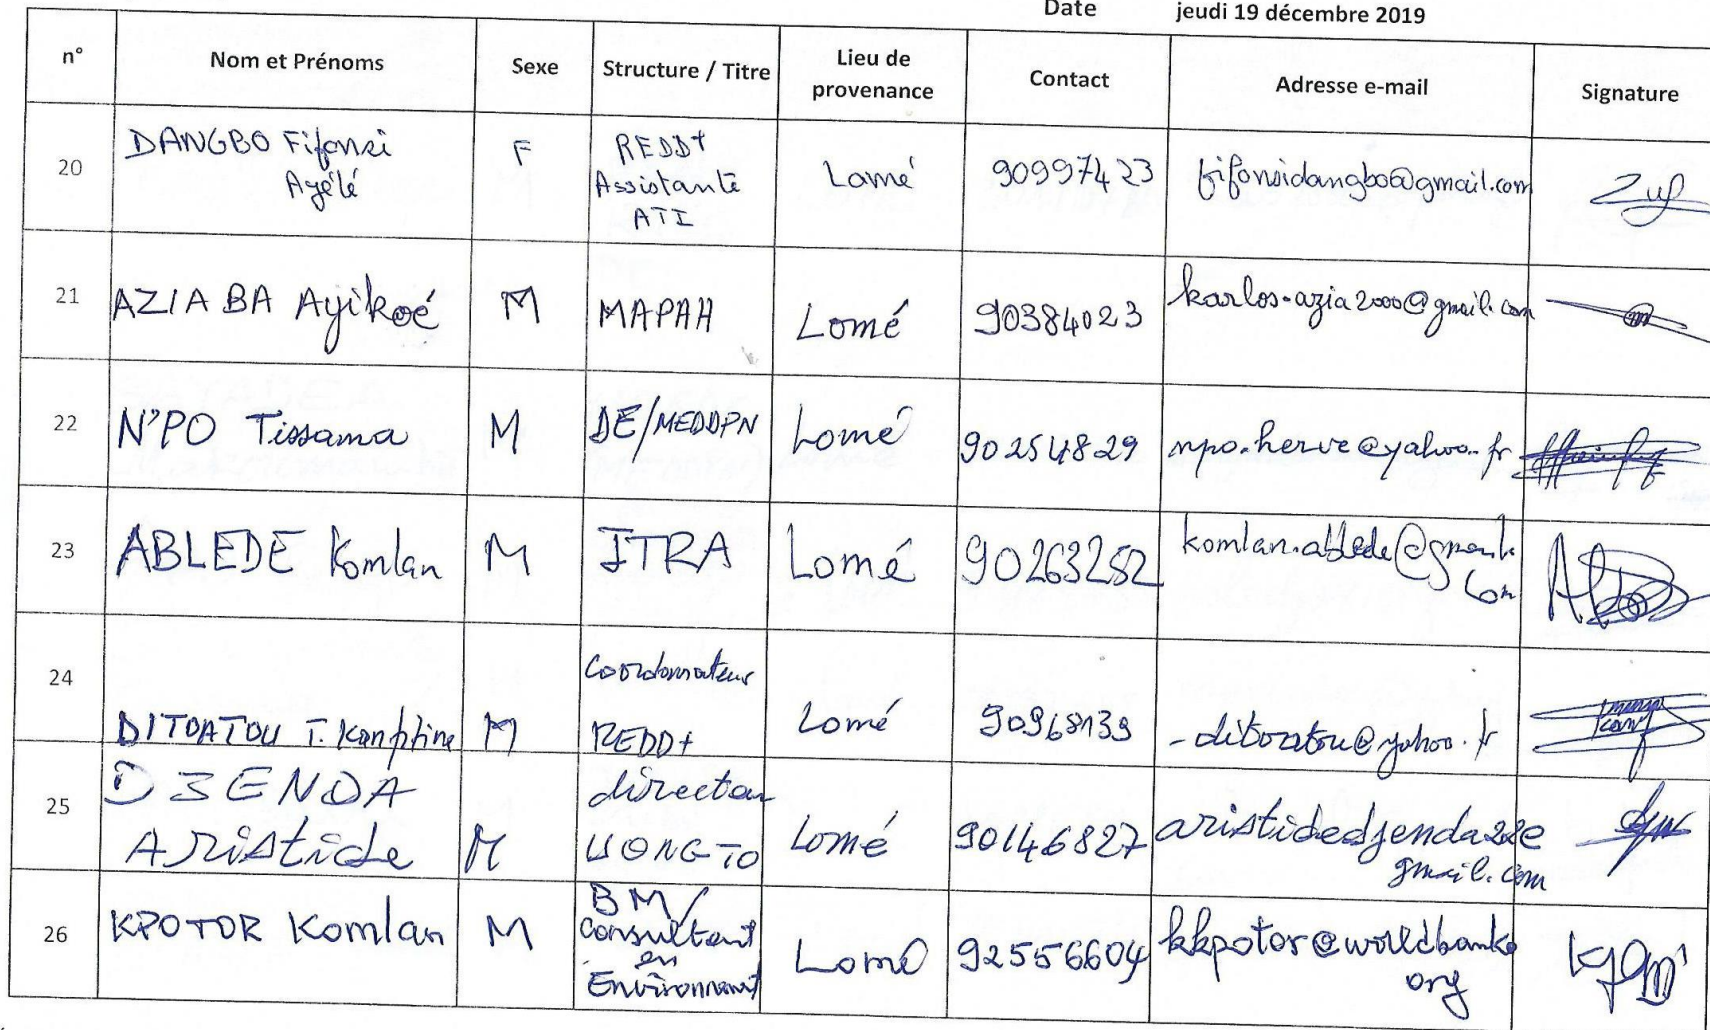 Date jeudi 19 décembre 2019
n° Nom et Prénoms Sexe Structure / Titre Lieu de provenance Contact Adresse e-mail Signature
20 DANGBO Fifonsi Ayélé F REDD+ Assistante ATI Lomé 90997423 fifonsidangbo@gmail.com
21 AZIABA Ayikoé M MAPAH Lomé 90384023 karlos-azia2000@gmail.com
22 N'PO Tissama M DE/MEDDPN Lomé 90254829 npo.herve@yahoo.fr
23 ABLEDE Komlan M ITRA Lomé 90263252 komlan.ablede@gmail.com
24 DITOATOU T. M Coordonnateur REDD+ Lomé 90968139 -ditoatou@yahoo.fr
25 DJENDA Aristide M directeur UONGTO Lomé 90146827 aristidedjenda22@gmail.com
26 KPOTOR Komlan M BM/ Consultant en Environnement Lomé 92556604 kkpotor@worldbank.org